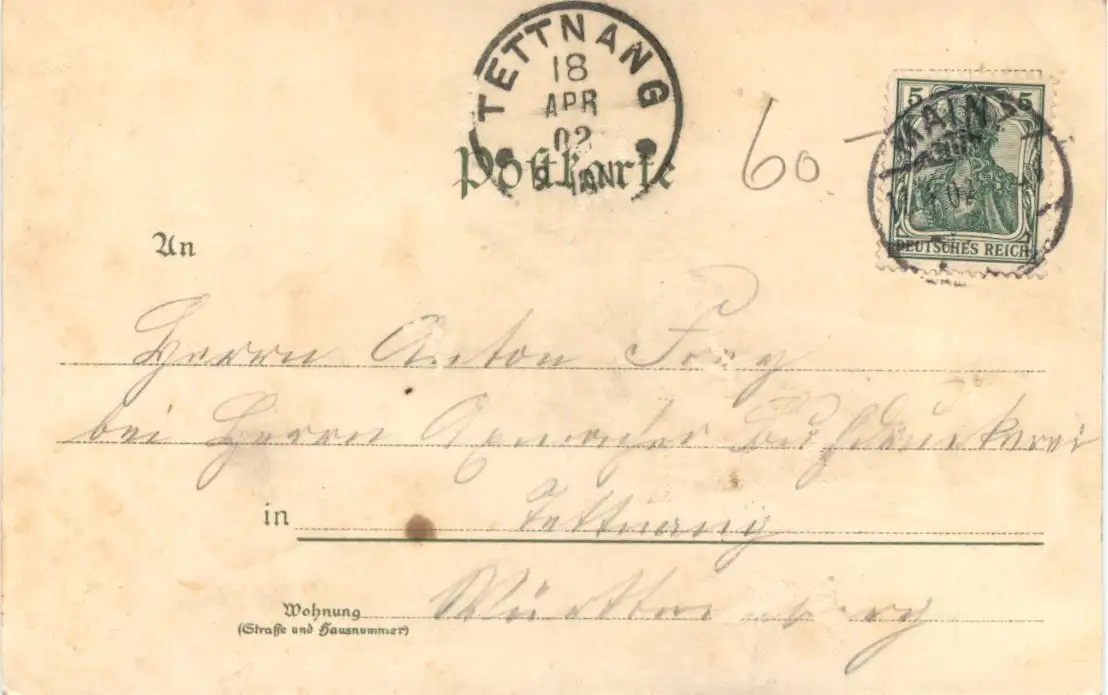 TETTNANG
18
APR
02
Postkarte
60
5 5
MAINZ
02
DEUTSCHES REICH
An
Herrn Anton Frey
bei Herrn Buchdruckerei
in Tettnang
Wohnung Württemberg
(Straße und Hausnummer)